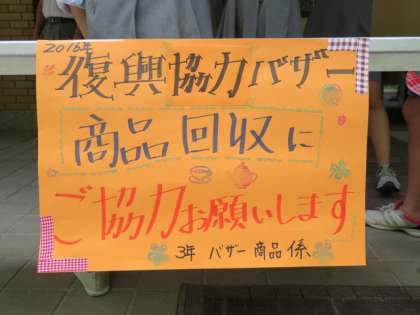 2016年
復興協力バザー
商品回収に
ご協力お願いします
3年 バザー商品係